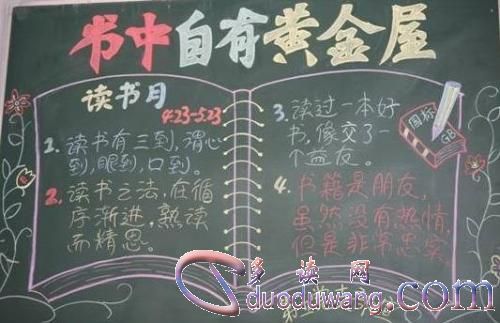 书中自有黄金屋
读书月
4.23-5.23
1. 读书有三到,谓心
到,眼到,口到。
2. 读书之法,在循
序渐进,熟读
而精思。
3. 读过一本好
书,像交了一
个益友。
4. 书籍是朋友,
虽然没有热情,
但是非常忠实
国标
GB
多读网
duoduwang.com